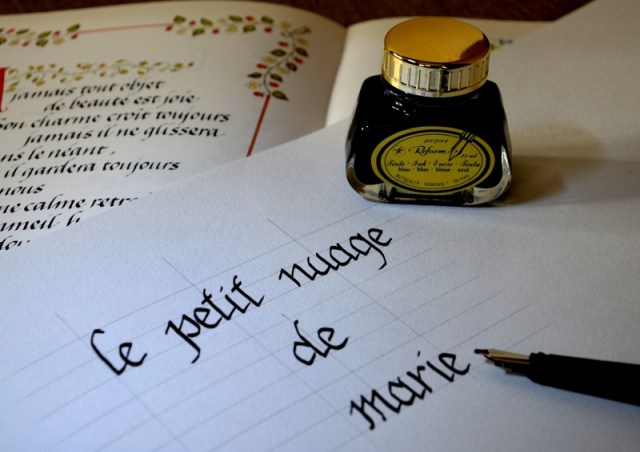 jamais tout objet
de beauté est joie
son charme croît toujours
jamais il ne glissera
le néant,
il gardera toujours
nous
calme
Reform
Tinte · Ink · Encre · Tinta
blau · blue · bleue · azul
le petit nuage
de
marie